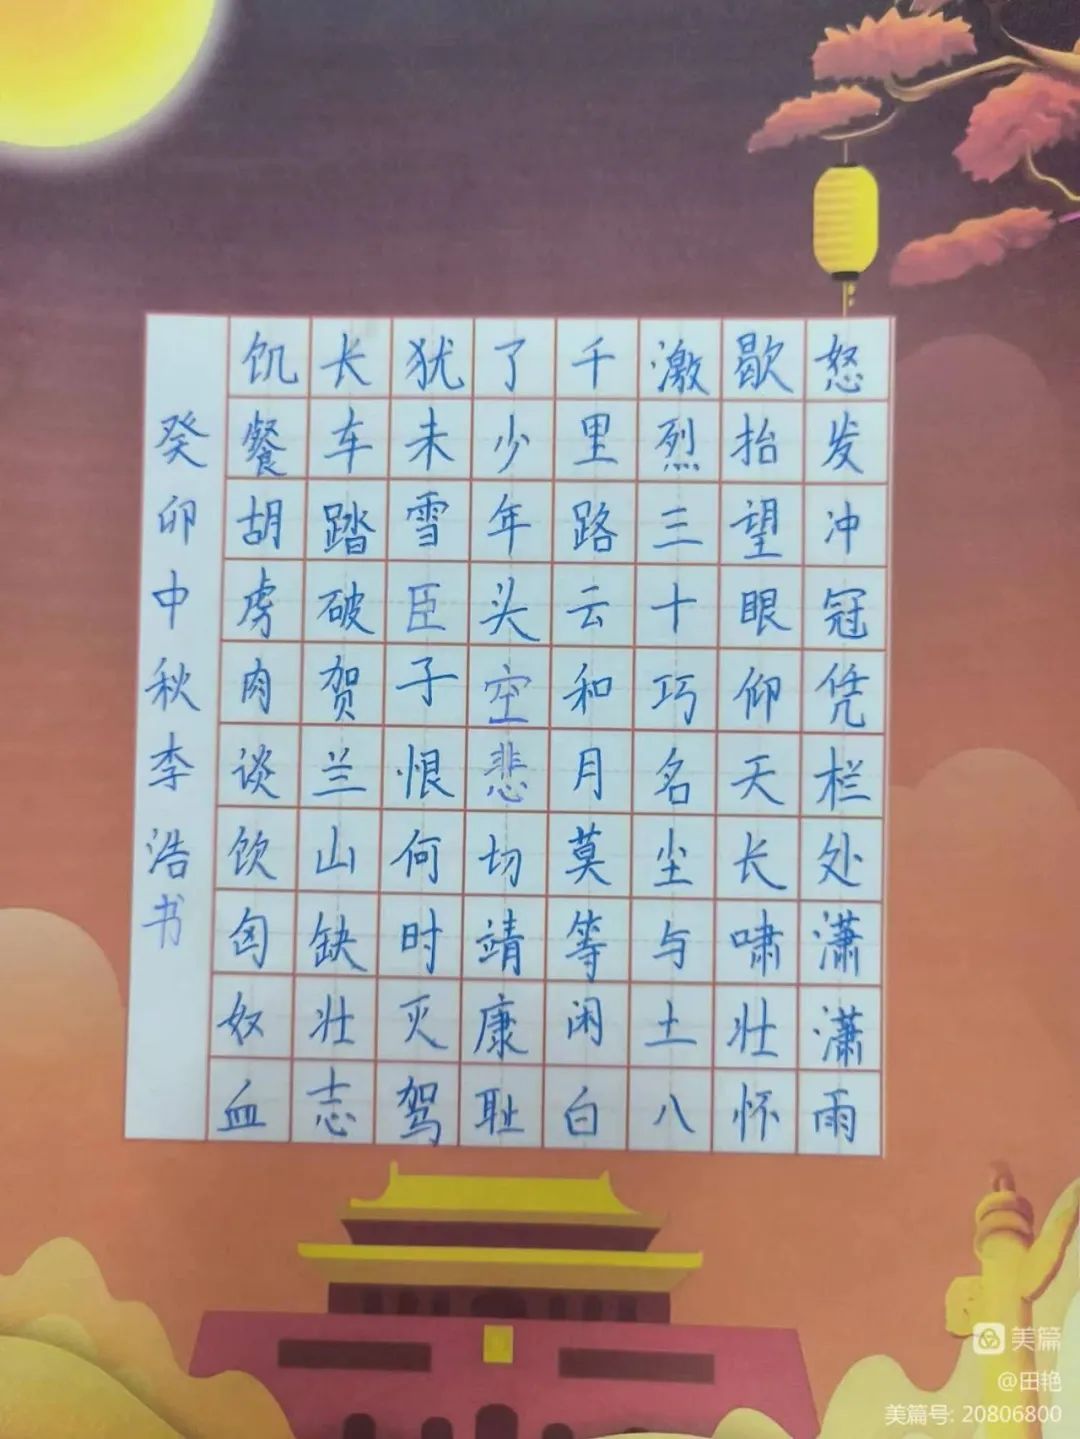 怒发冲冠凭栏处潇潇雨
歇抬望眼仰天长啸壮怀
激烈三十巧名尘与土八
千里路云和月莫等闲白
了少年头空悲切靖康耻
犹未雪臣子恨何时灭驾
长车踏破贺兰山缺壮志
饥餐胡虏肉谈饮匈奴血
癸卯中秋李浩书
美篇
@田艳
美篇号: 20806800